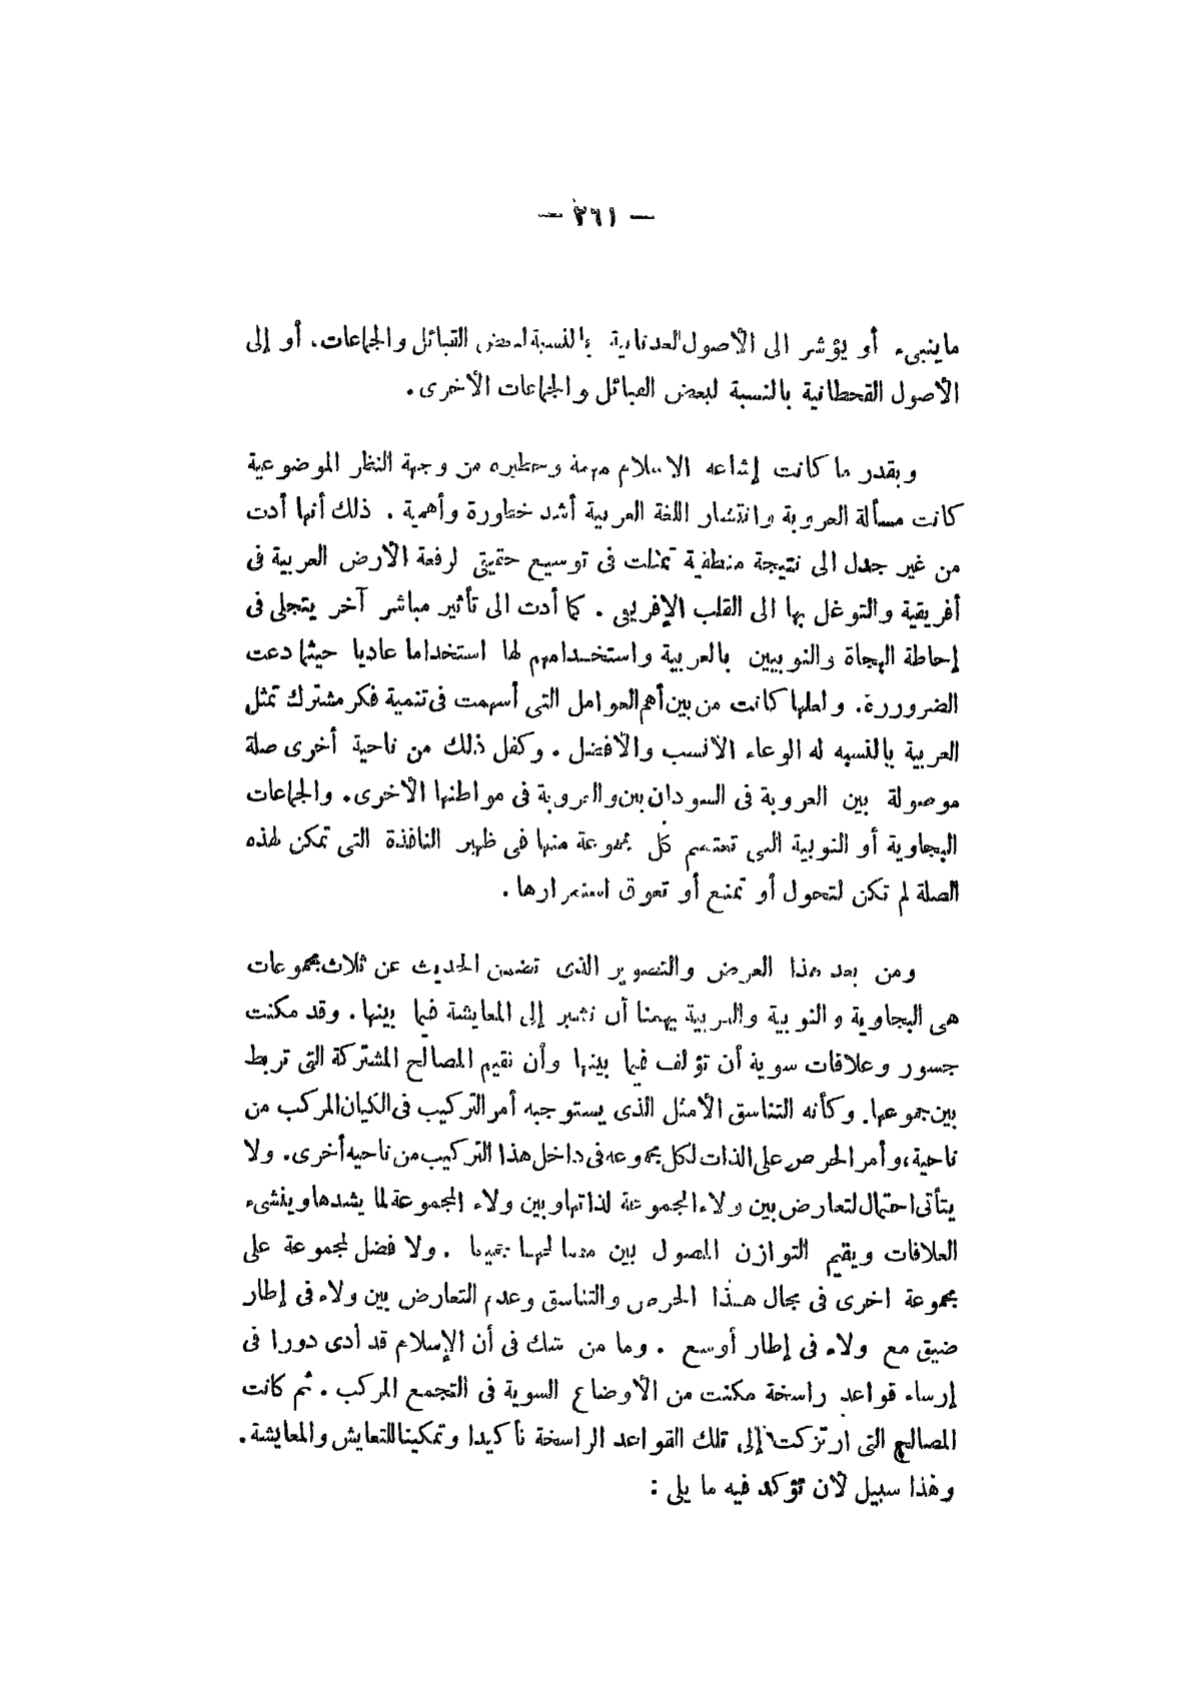 — ٣٦١ —
ماينبىء أو يؤشر الى الأصول العدنانية بالنسبة لبعض القبائل والجماعات. أو إلى
الأصول القحطانية بالنسبة لبعض القبائل والجماعات الأخرى.
وبقدر ما كانت إشاعة الاسلام مهمة وخطيره من وجهة النظر الموضوعية
كانت مسألة العروبة وانتشار اللغة العربية أشد خطورة وأهمية. ذلك أنها أدت
من غير جدل الى نتيجة منطقية تمثلت فى توسيع حقيقى لرقعة الأرض العربية فى
أفريقية والتوغل بها الى القلب الإفريقى. كما أدت الى تأثير مباشر آخر يتجلى فى
إحاطة البجاة والنوبيين بالعربية واستخدامهم لها استخداما عاديا حيثما دعت
الضرورة. ولعلها كانت من بين أهم العوامل التى أسهمت فى تنمية فكر مشترك تمثل
العربية بالنسبه له الوعاء الأنسب والأفضل. وكفل ذلك من ناحية أخرى صلة
موصولة بين العروبة فى السودان بين والعروبة فى مواطنها الأخرى. والجماعات
البجاوية أو النوبية التى تعتصم كل مجموعة منها فى ظهير النافذة التى تمكن لهذه
الصلة لم تكن لتحول أو تمنع أو تعوق استمرارها.
ومن بعد هذا العرض والتصوير الذى تضمن الحديث عن ثلاث مجموعات
هى البجاوية والنوبية والعربية يهمنا أن نشير إلى المعايشة فيما بينها. وقد مكنت
جسور وعلاقات سوية أن تؤلف فيما بينها وأن تقيم المصالح المشتركة التى تربط
بين جموعها. وكأنه التناسق الأمثل الذى يستوجبه أمر التركيب فى الكيان المركب من
ناحية، وأمر الحرص على الذات لكل مجموعه فى داخل هذا التركيب من ناحيه أخرى. ولا
يتأتى احتمال لتعارض بين ولاء المجموعة لذاتها وبين ولاء المجموعة لما يشدها وينشىء
العلاقات ويقيم التوازن المصول بين مصالحها جميعا. ولا فضل لمجموعة على
مجموعة اخرى فى مجال هذا الحرص والتناسق وعدم التعارض بين ولاء فى إطار
ضيق مع ولاء فى إطار أوسع. وما من شك فى أن الإسلام قد أدى دورا فى
إرساء قواعد راسخة مكنت من الأوضاع السوية فى التجمع المركب. ثم كانت
المصالح التى ارتزكت إلى تلك القواعد الراسخة تأكيدا وتمكينا للتعايش والمعايشة.
وهذا سبيل لأن تؤكد فيه ما يلى :